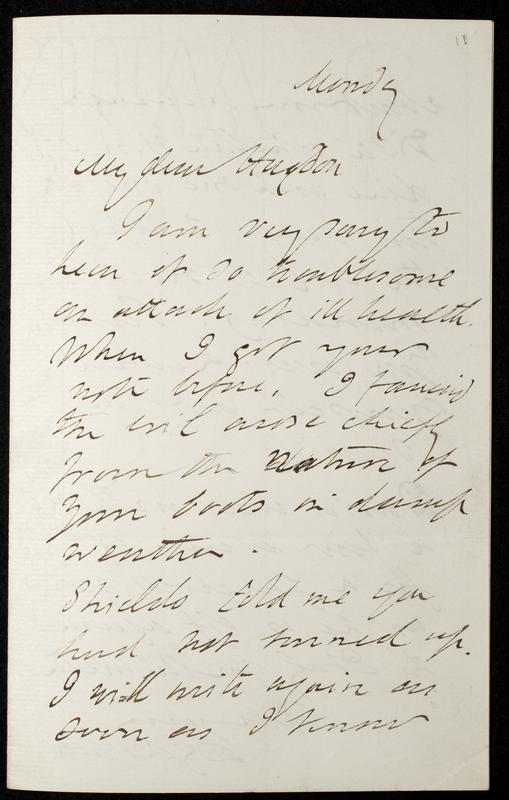 11
Monday
My dear Haydon
I am very sorry to
hear of so troublesome
an attack of ill health.
When I got your
note before, I fancied
the evil arose chiefly
from the nature of
your boots in damp
weather.
Shields told me you
had not turned up.
I will write again as
soon as I know